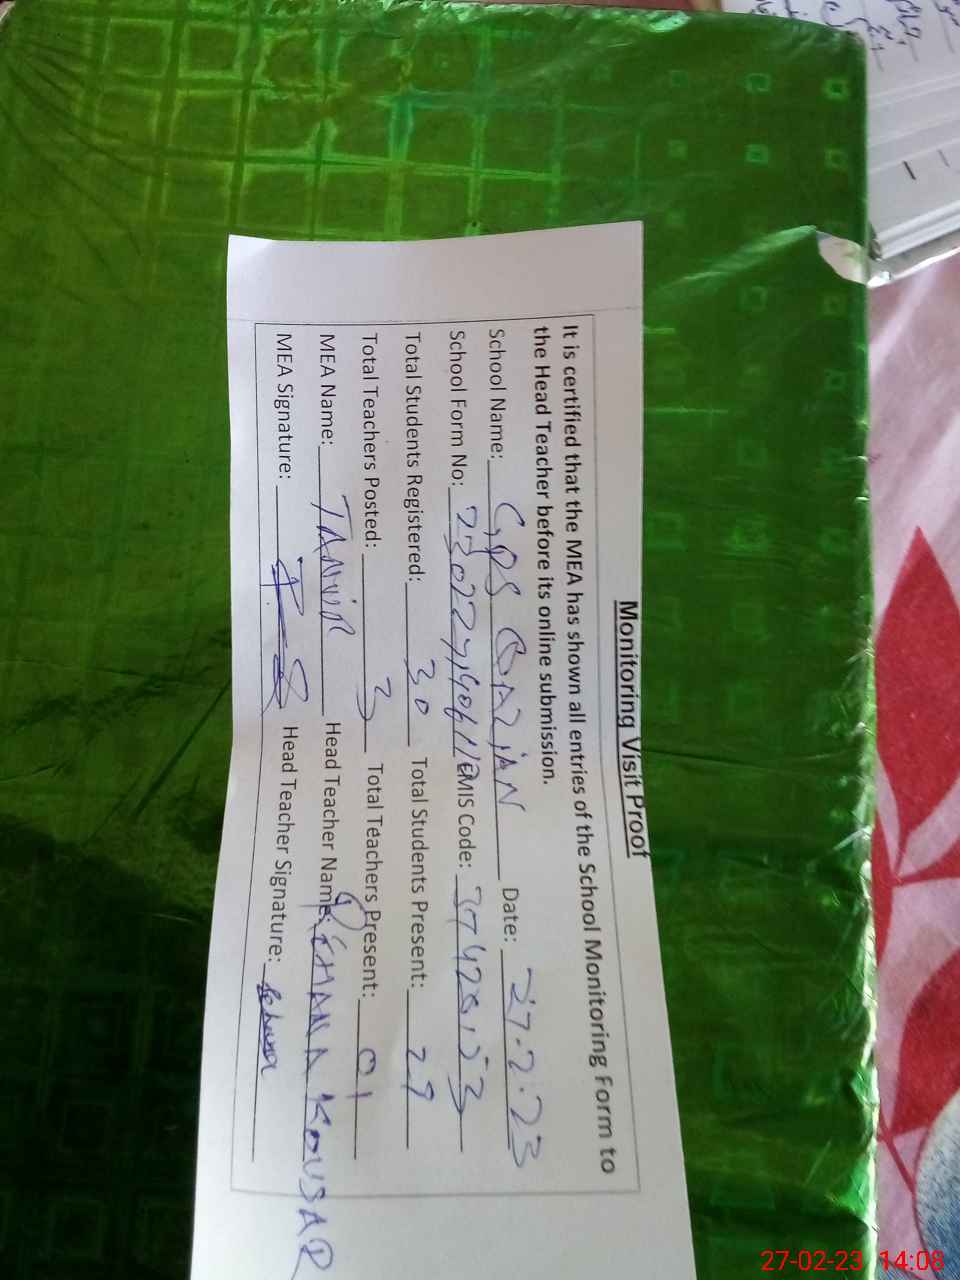 Monitoring Visit Proof
It is certified that the MEA has shown all entries of the School Monitoring Form to
the Head Teacher before its online submission.
School Name: GPS Date: 27.2.23
School Form No: EMIS Code:
Total Students Registered: 30 Total Students Present: 29
Total Teachers Posted: 3 Total Teachers Present: 01
MEA Name: TANVIR Head Teacher Name: REHANA KOUSAR
MEA Signature: Head Teacher Signature: Rehana
27-02-23 14:08